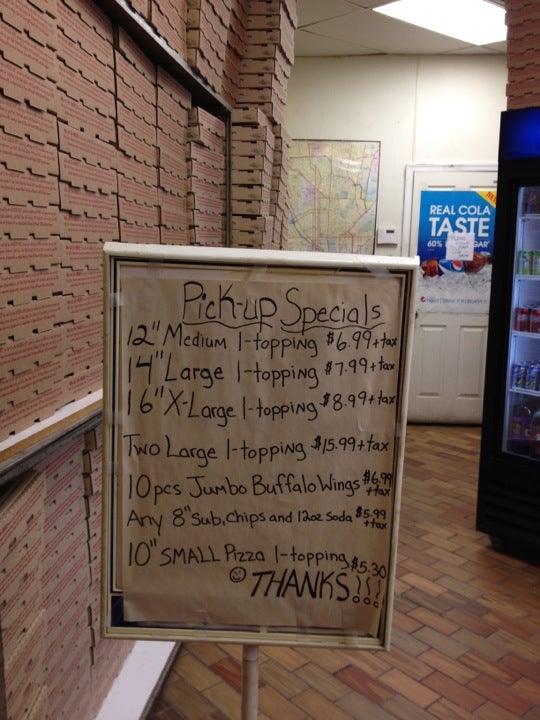 Pick-up Specials
12" Medium 1-topping $6.99+tax
14" Large 1-topping $7.99+tax
16" X-Large 1-topping $8.99+tax
Two Large 1-topping $15.99+tax
10pcs Jumbo Buffalo Wings $6.99 +tax
Any 8" Sub, Chips and 12oz Soda $5.99 +tax
10" SMALL Pizza 1-topping $5.30
THANKS!!!
REAL COLA
TASTE
60%